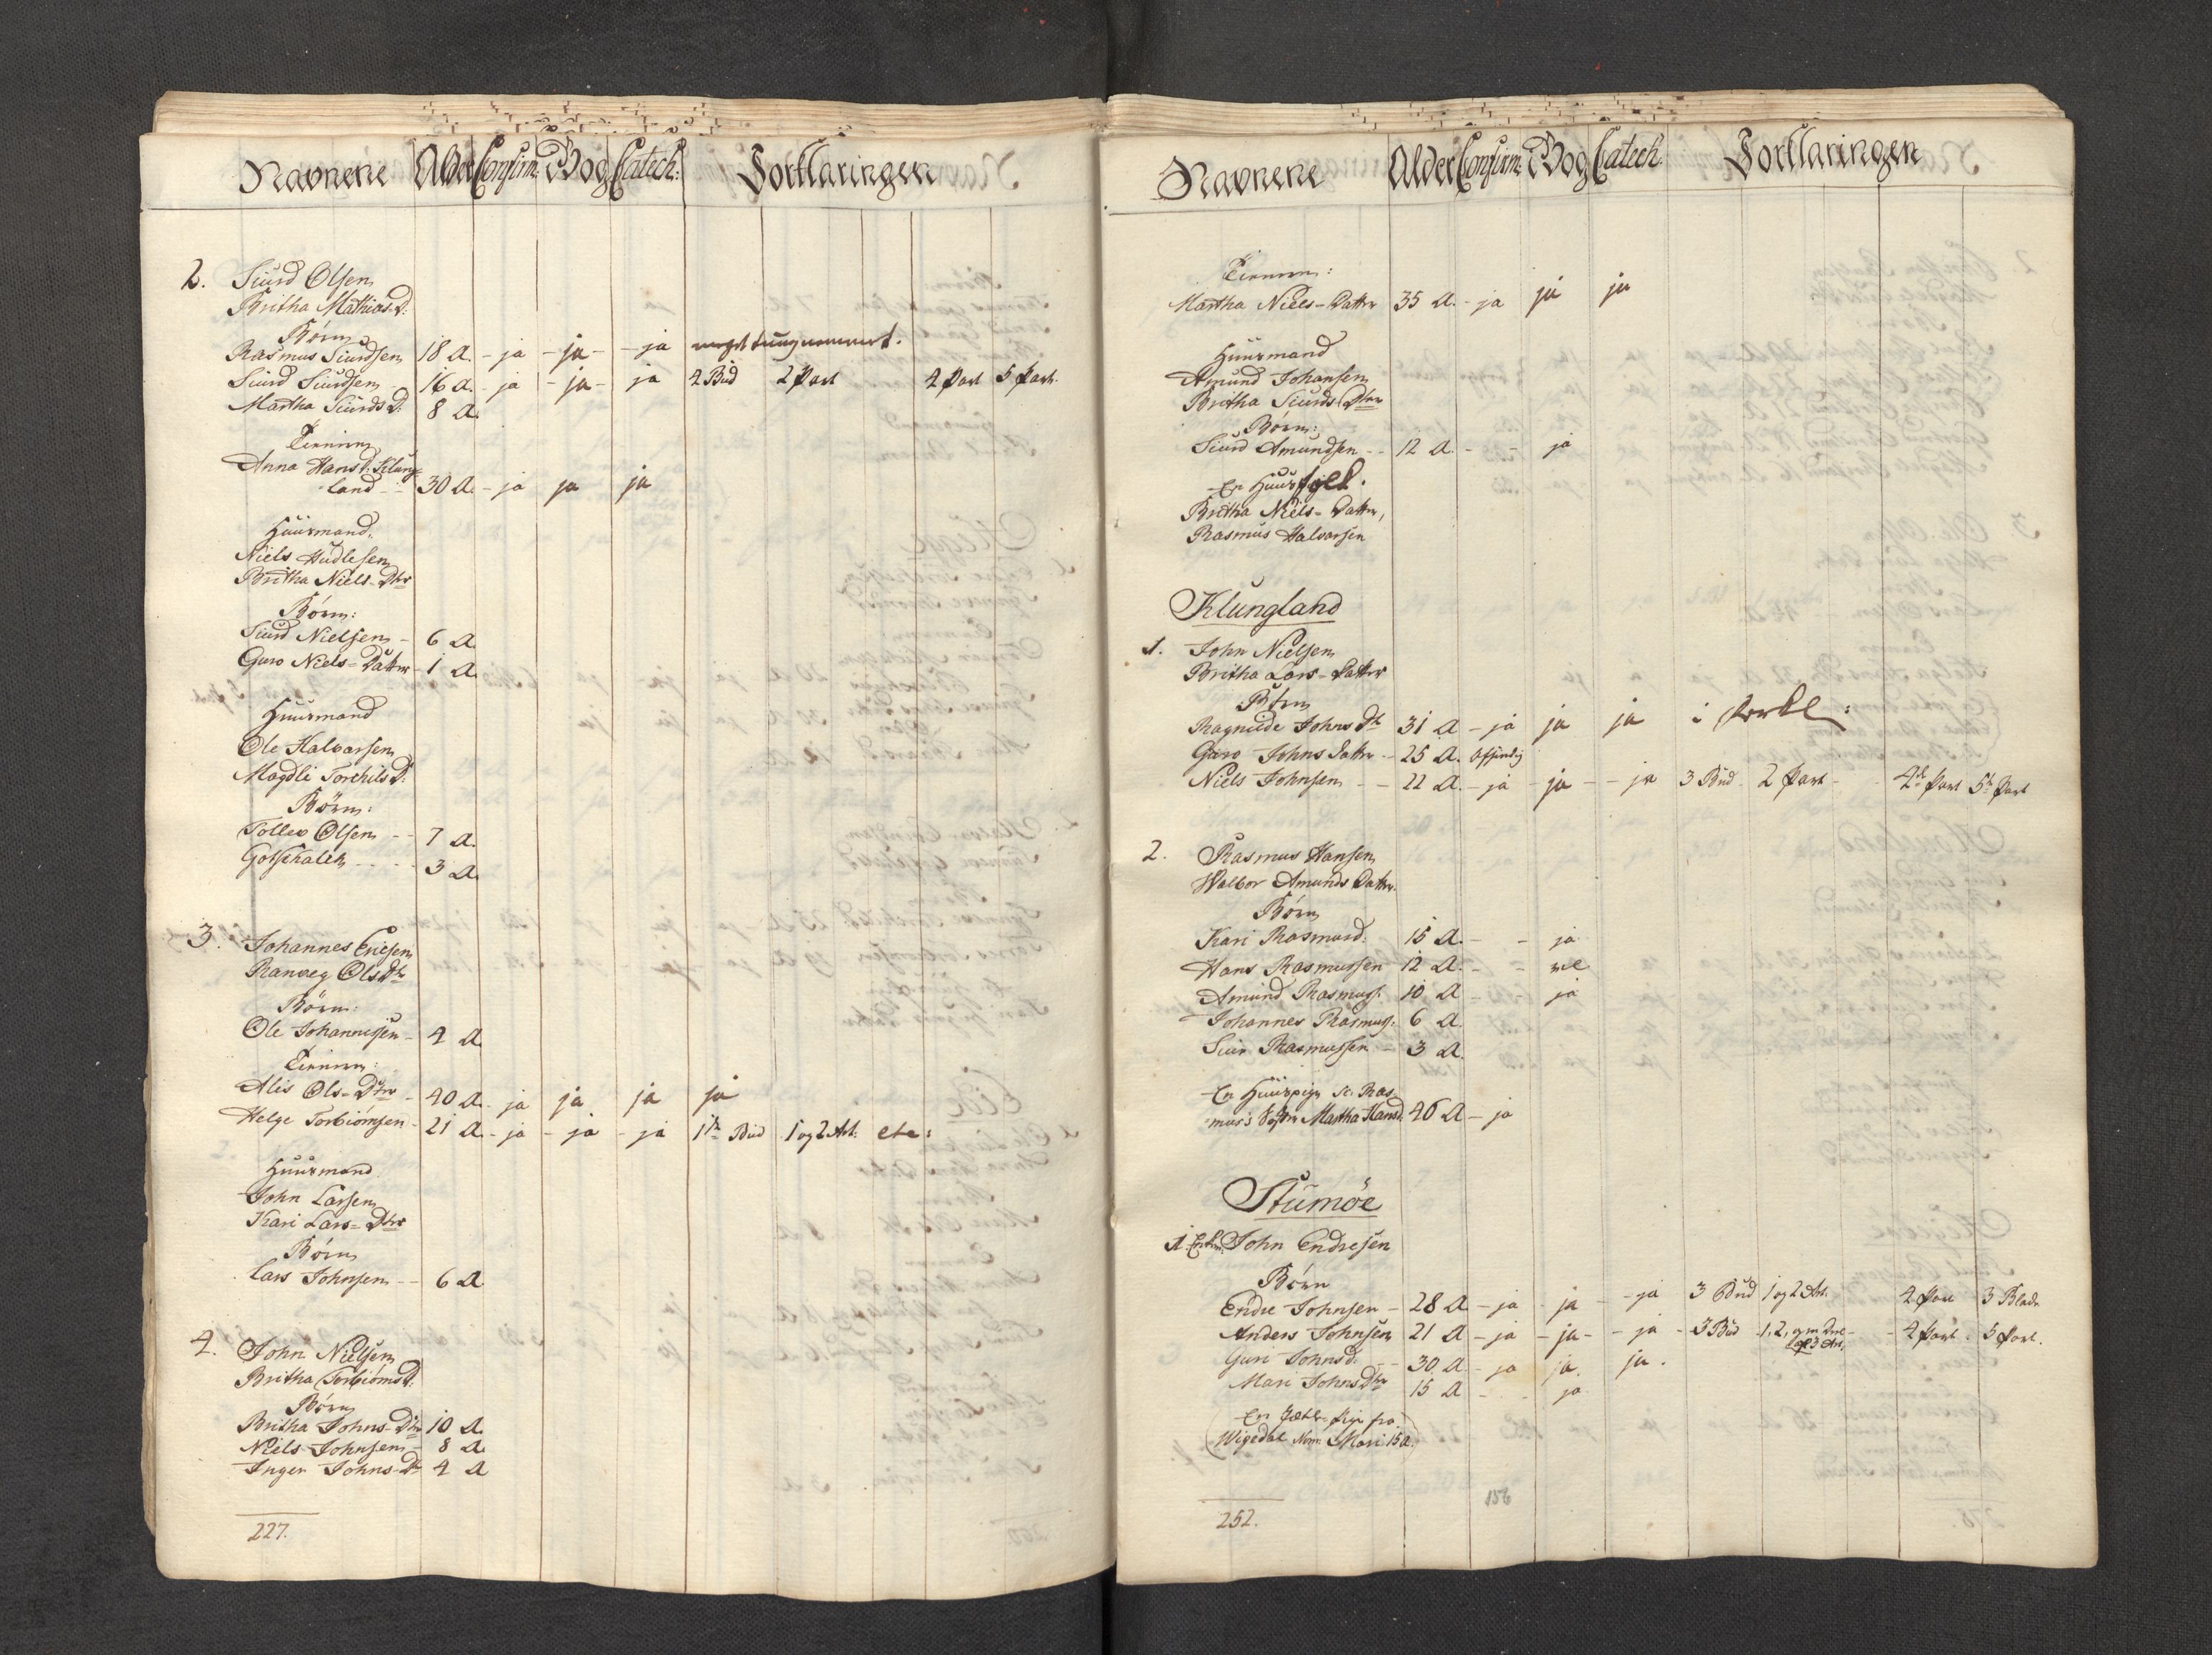 Navnene Alder Confirm: Bog Catech: Forklaringen
2. Siurd Olsen
Britha Mathias D:
Børn
Rasmus Siurdsen 18 A. - ja - ja - - ja meget tungnemmet.
Siurd Siurdsen 16 A. - ja - ja - ja 4 Bud 2 Part 4 Part 5 Part.
Martha Siurds D: 8 A.
Tienner
Anna Hans D: Klung-
land - 30 A. - ja ja ja
Huusmand.
Niels Hudlesen
Britha Niels-Dtr
Børn:
Siurd Nielsen - 6 A
Guro Niels-Datter - 1 A.
Huusmand
Ole Halvorsen
Magdli Torchils D:
Børn:
Tollev Olsen - - 7 A.
Gotschalch - - - 3 A.
3. Johannes Ericsen
Ranveg Ols Dtr
Børn:
Ole Johannessen - 4 A
Tienner:
Alis Ols-Dtr - 40 A. - ja ja ja ja
Helge Torbiørnsen - 21 A. - ja - ja - ja 1te Bud 1 og 2 Art: etc:
Huusmand
John Larsen
Kari Lars-Dtr
Børn
Lars Johnsen - - 6 A
4. John Nielsen
Britha Torbiørns D.
Børn
Britha Johns-Dtr 10 A.
Niels Johnsen - 8 A.
Inger Johns-Dr 4 A
227.
Navnene Alder Confirm: Bog Catech. Forklaringen
Tienner:
Martha Niels-Datter 35 A. - ja ja ja
Huusmand
Amund Johansen
Britha Siurds Dtr
Børn:
Siurd Amundsen - - 12 A. - - ja
En Huusfolk.
Britha Niels-Datter,
Rasmus Halvorsen
Klungland
1. John Nielsen
Britha Lars-Datter
Børn
Ragnilde Johns Dtr 31 A - ja ja ja i Forkl:
Guro Johns Datter - 25 A.
Niels Johnsen - - 22 A. - ja - ja - - ja 3 Bud 2 Part - - 4de Part 5te Part
2. Rasmus Hansen
Walbor Amunds Datter.
Børn
Kari Rasmusd. 15 A. - - ja
Hans Rasmussen 12 A. - -
Amund Rasmuss. 10 A - - ja
Johannes Rasmuss. 6 A.
Siur Rasmussen - 3 A.
En Huuspige sc. Ras-
mus's Søster Martha Hansd. 46 A - ja
Stumøe
1. Enkem. John Endresen
Børn
Endre Johnsen - 28 A - ja - ja - - ja 3 Bud 1 og 2 Art. 4 Part 3 Blade
Anders Johnsen 21 A - ja - ja - - ja - 3 Bud 1, 2, og en Deel
af 3 Art. - 4 Part. 5 Part.
Guri Johnsd. - 30 A. - ja ja. ja.
Mari Johns Dtr 15 A - - ja
(En Giætle-Pige fra
Wigedal Nom. Mari 15 A.)
156
252.